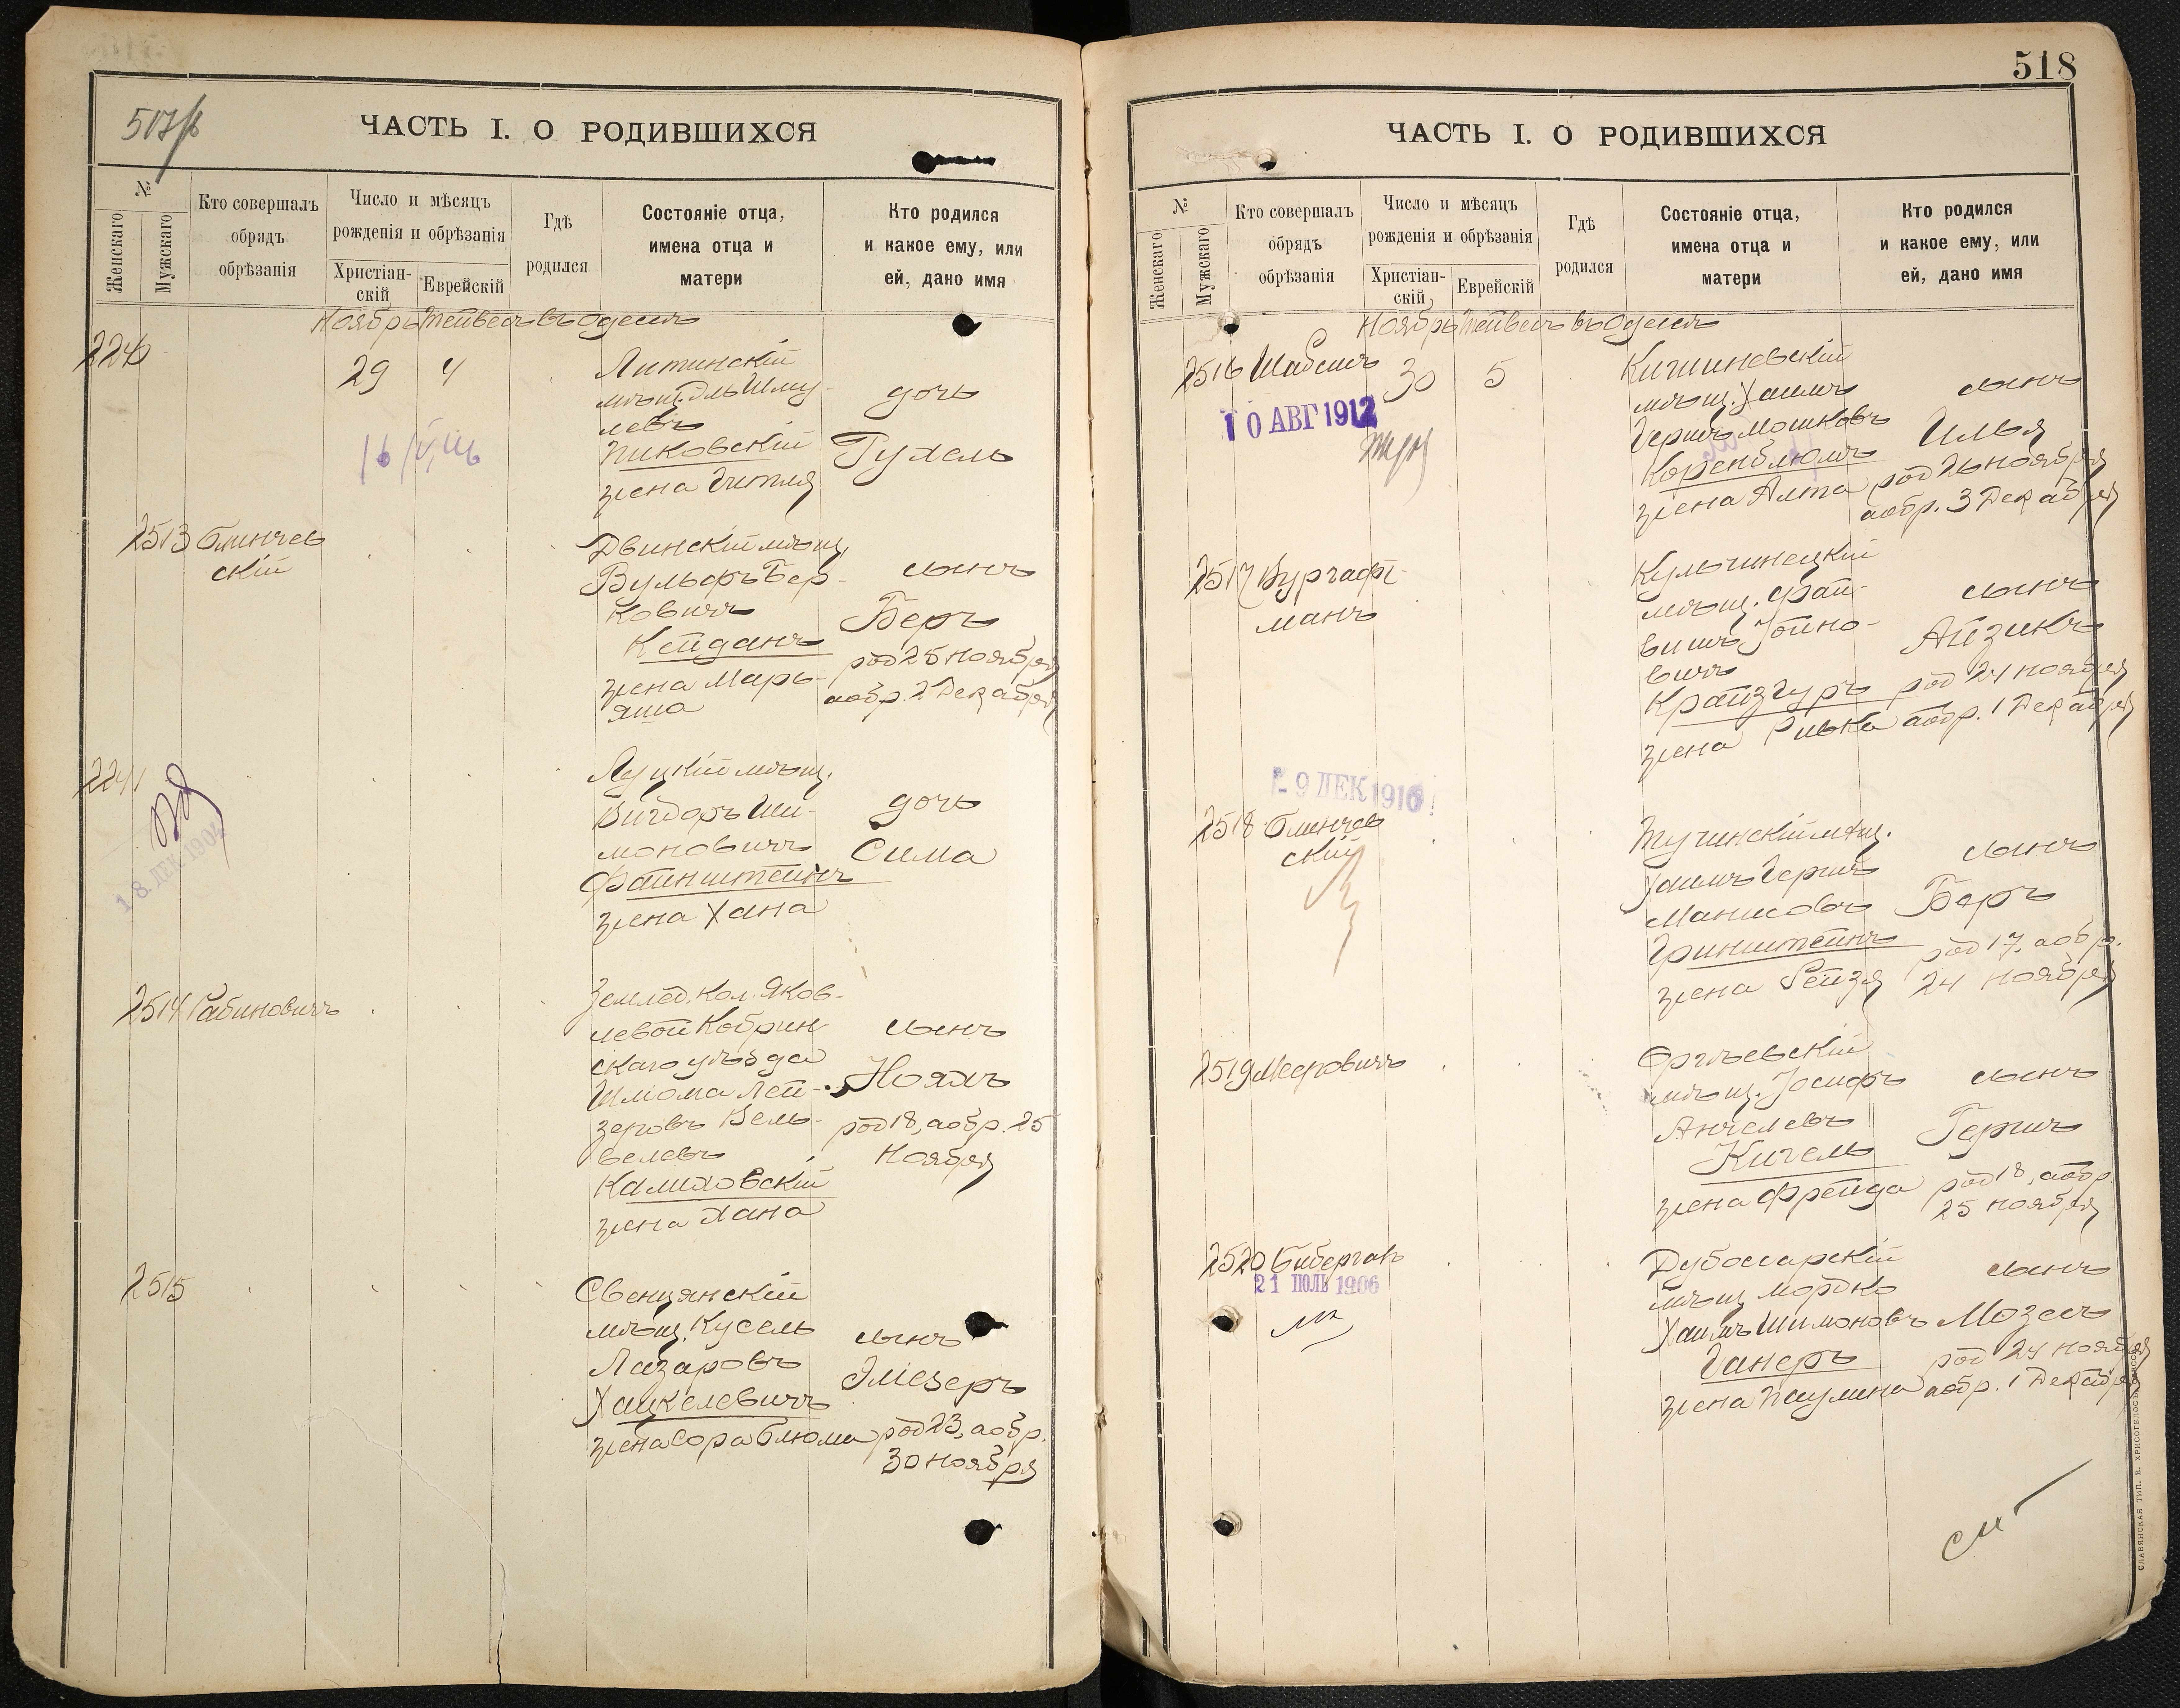 517/b
ЧАСТЬ I. О РОДИВШИХСЯ
№
Женскаго
Мужскаго
Кто совершалъ
обрядъ
обрѣзанія
Число и мѣсяцъ
рожденія и обрѣзанія
Христіан-
скій
Еврейскій
Гдѣ
родился
Состояніе отца,
имена отца и
матери
Кто родился
и какое ему, или
ей, дано имя
Ноябрь Тейвесъ въ Одессѣ
2240
29 4
Литинскій
мѣщ. Эль Шму-
левъ
Пиковскій
жена Гитля
дочь
Рухель
2513 Блинчев
скій
Двинскій мѣщ.
Вульфъ Бер-
ковичъ
Кейданъ
жена Марь-
яша
сынъ
Беръ
род 25 ноября
аобр. 2 Декабря
2241
18 ДЕК 1904
Луцкій мѣщ.
Вигдоръ Ши-
моновичъ
Файнштейнъ
жена Хана
дочь
Сима
2514 Рабиновичъ
Землед. кол. Яков-
левой Кобрин-
скаго уѣзда
Шлиома Лей-
зеровъ Вель-
велевъ
Калиховскій
жена Хана
сынъ
Ноахъ
род 18, аобр. 25
Ноября
2515
Свенцянскій
мѣщ. Кусель
Лазаровъ
Хацкелевичъ
жена Сора Блюма
сынъ
Эліезеръ
род 23, аобр.
30 ноября
518
ЧАСТЬ I. О РОДИВШИХСЯ
№
Женскаго
Мужскаго
Кто совершалъ
обрядъ
обрѣзанія
Число и мѣсяцъ
рожденія и обрѣзанія
Христіан-
скій
Еврейскій
Гдѣ
родился
Состояніе отца,
имена отца и
матери
Кто родился
и какое ему, или
ей, дано имя
Ноябрь Тейвесъ въ Одессѣ
2516 Шабсисъ
30 5
10 АВГ 1912
Кишиневскій
мѣщ. Хаимъ
Гершъ Мошковъ
Коренблюмъ
жена Алта
сынъ
Илья
род 26 ноября
аобр. 3 Декабря
2517 Вургафт-
манъ
Кульчинецкій
мѣщ. Фай-
вишъ Іойно-
вичъ
Крайзгуръ
жена Ривка
сынъ
Айзикъ
род 24 ноября
аобр. 1 Декабря
- 9 ДЕК 1916
2518 Блинчев
скій
Тучинскій мѣщ.
Хаимъ Гершъ
Манисовъ
Гринштейнъ
жена Рейзя
сынъ
Беръ
род 17, аобр.
24 ноября
2519 Мееровичъ
Оргѣевскій
мѣщ. Іосифъ
Анчелевъ
Кигель
жена Фрейда
сынъ
Гершъ
род 18, аобр.
25 ноября
2520 Бибергалъ
21 ІЮЛЬ 1906
Дубоссарскій
мѣщ. Мордко
Хаимъ Шимоновъ
Ганеръ
жена Паулина
сынъ
Мозесъ
род 24 ноября
аобр. 1 Декабря
СЛАВЯНСКАЯ ТИП. Е. ХРИСОГЕЛОСЪ, ОДЕССА